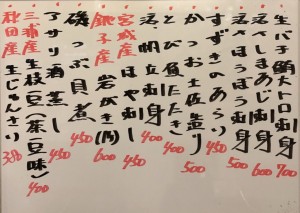 生バチ鮪トロ刺身 700
活〆しまあじ刺身 600
活ほうぼう刺身 500
すずきのあらい 450
かつお土佐造り 500
とび魚たたき 400
活帆立刺身 400
宮城産 ほや刺し 450
銚子産 岩がき 600
磯つぶ貝煮 450
アサリ酒蒸し 450
三浦産 生枝豆(茶豆味) 400
秋田産 生じゅんさい 350